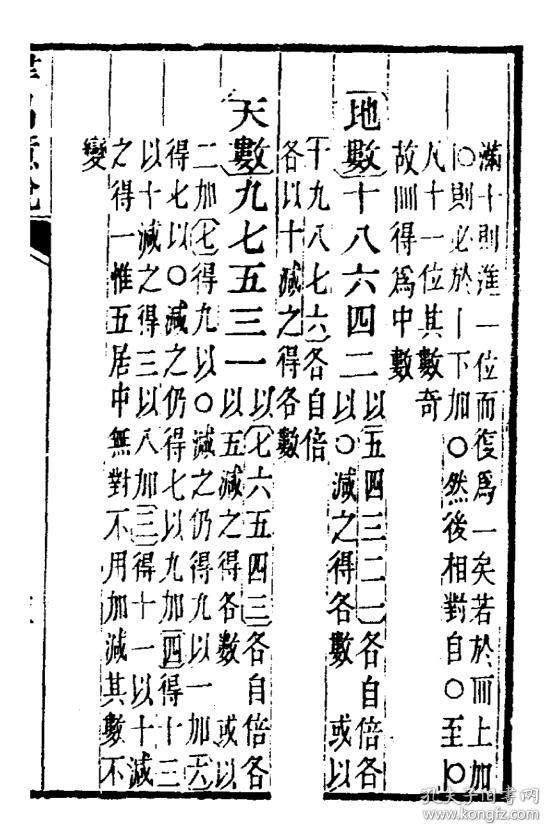 滿十則進一位而復爲一矣若於𝍨上加
丨〇則必於丨下加〇然後相對自〇至丨〇
凡十一位其數奇
故𝍤得爲中數
地數十八六四二
以五四三二一各自倍各
以〇減之得各數 或以
十九八七六各自倍
各以十減之得各數
天數九七五三一
以七六五四三各自倍各
以五減之得各數 或以
二加七得九以〇減之仍得九以一加六
得七以〇減之仍得七以九加四得十三
以十減之得三以八加三得十一以十減
之得一惟五居中無對不用加減其數不
變
孔夫子旧书网